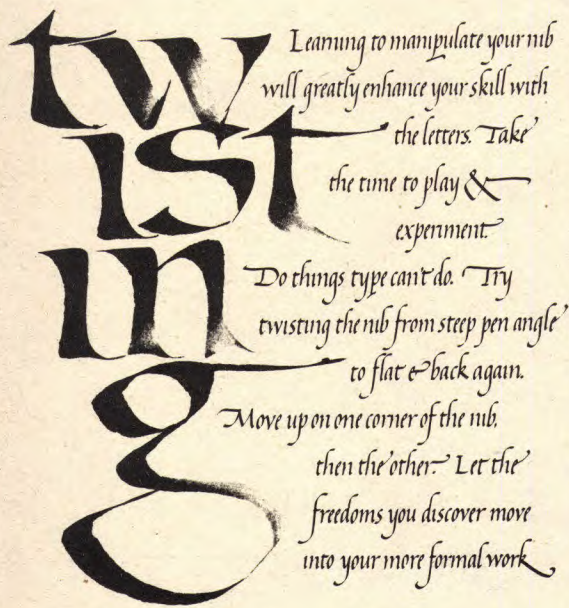 tw
ist
in
g
Learning to manipulate your nib
will greatly enhance your skill with
the letters. Take
the time to play &
experiment.
Do things type can't do. Try
twisting the nib from steep pen angle
to flat & back again.
Move up on one corner of the nib,
then the other. Let the
freedoms you discover move
into your more formal work